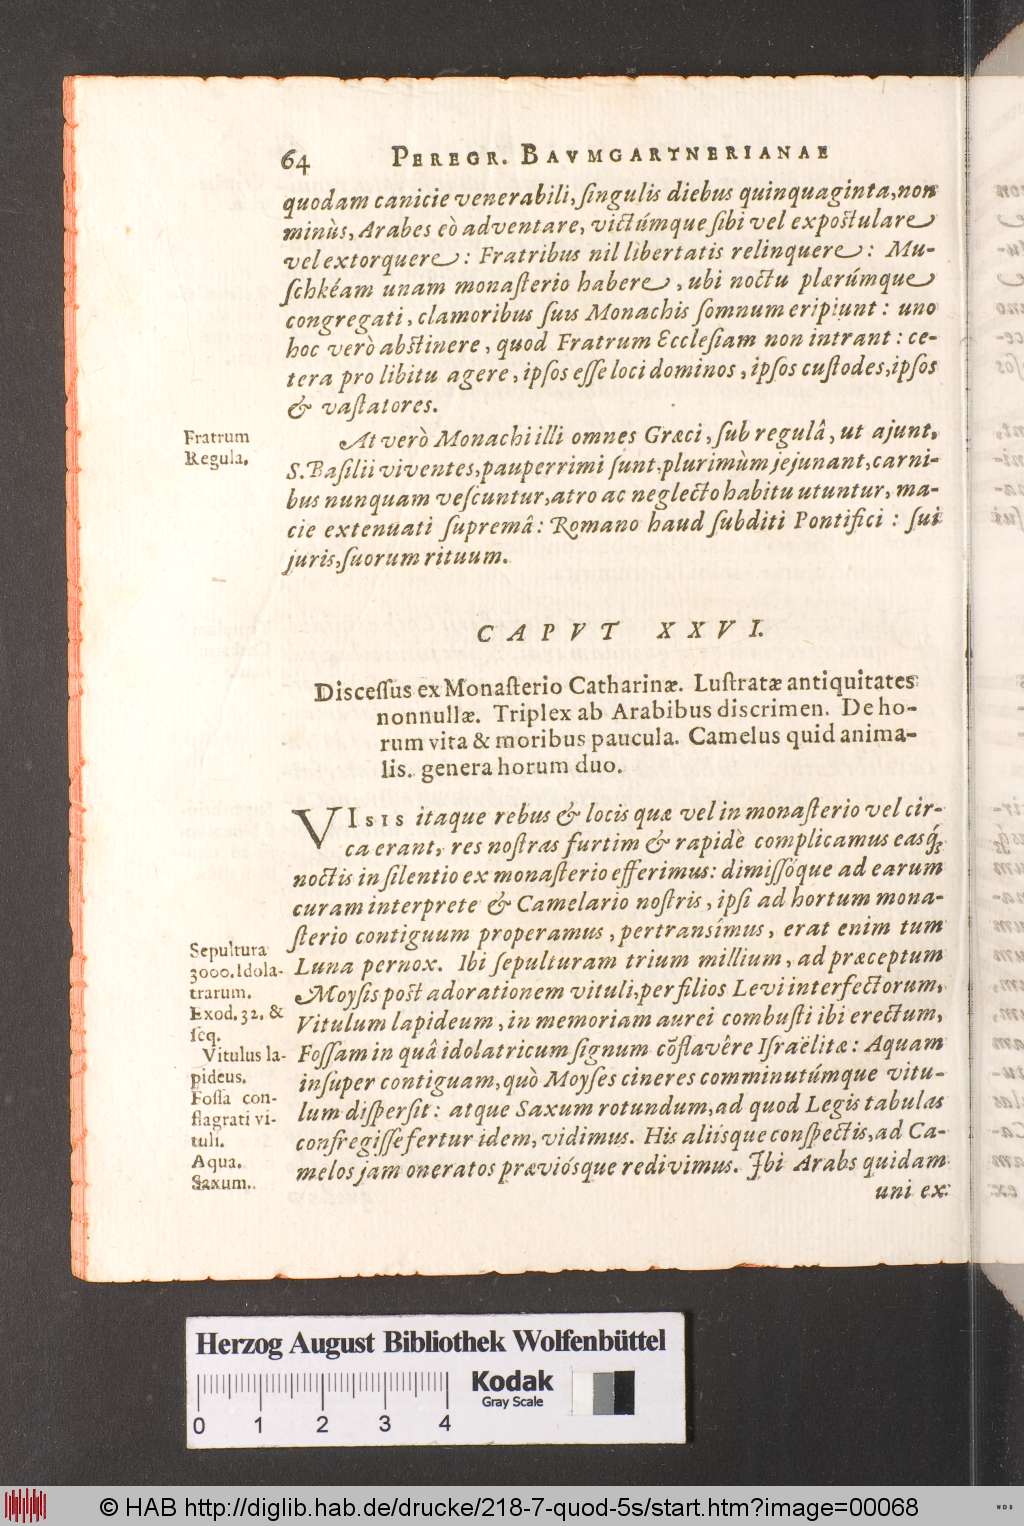 64 PEREGR. BAVMGARTNERIANAE
quodam canicie venerabili, ſingulis diebus quinquaginta, non
minùs, Arabes eò adventare, victúmque ſibi vel expoſtulare
vel extorquere: Fratribus nil libertatis relinquere: Mu-
ſchkéam unam monaſterio habere, ubi noctu plærúmque
congregati, clamoribus ſuis Monachis ſomnum eripiunt: uno
hoc verò abſtinere, quod Fratrum Eccleſiam non intrant: ce-
tera pro libitu agere, ipſos eſſe loci dominos, ipſos cuſtodes, ipſos
& vaſtatores.
Fratrum
Regula.
At verò Monachi illi omnes Græci, ſub regulâ, ut ajunt,
S. Baſilii viventes, pauperrimi ſunt, plurimùm jejunant, carni-
bus nunquam veſcuntur, atro ac neglecto habitu utuntur, ma-
cie extenuati ſupremâ: Romano haud ſubditi Pontifici: ſui
juris, ſuorum rituum.
CAPVT XXVI.
Diſceſſus ex Monaſterio Catharinæ. Luſtratæ antiquitates
nonnullæ. Triplex ab Arabibus discrimen. De ho-
rum vita & moribus paucula. Camelus quid anima-
lis. genera horum duo.
VIsis itaque rebus & locis quæ vel in monaſterio vel cir-
ca erant, res noſtras furtim & rapidè complicamus easq́;
noctis in ſilentio ex monaſterio efferimus: dimiſſóque ad earum
curam interprete & Camelario noſtris, ipſi ad hortum mona-
ſterio contiguum properamus, pertransímus, erat enim tum
Luna pernox. Ibi ſepulturam trium millium, ad præceptum
Moyſis poſt adorationem vituli, per filios Levi interfectorum,
Vitulum lapideum, in memoriam aurei combuſti ibi erectum,
Foſſam in quâ idolatricum ſignum cõflavêre Iſraëlitæ: Aquam
inſuper contiguam, quò Moyſes cineres comminutúmque vitu-
lum diſperſit: atque Saxum rotundum, ad quod Legis tabulas
confregiſſe fertur idem, vidimus. His aliisque conſpectis, ad Ca-
melos jam oneratos præviósque redivimus. Ibi Arabs quidam
uni ex
Sepultura
3000. Idola-
trarum.
Exod. 32. &
ſeq.
Vitulus la-
pideus.
Foſſa con-
flagrati vi-
tuli.
Aqua.
Saxum.
Herzog August Bibliothek Wolfenbüttel
Kodak
Gray Scale
0 1 2 3 4
© HAB http://diglib.hab.de/drucke/218-7-quod-5s/start.htm?image=00068